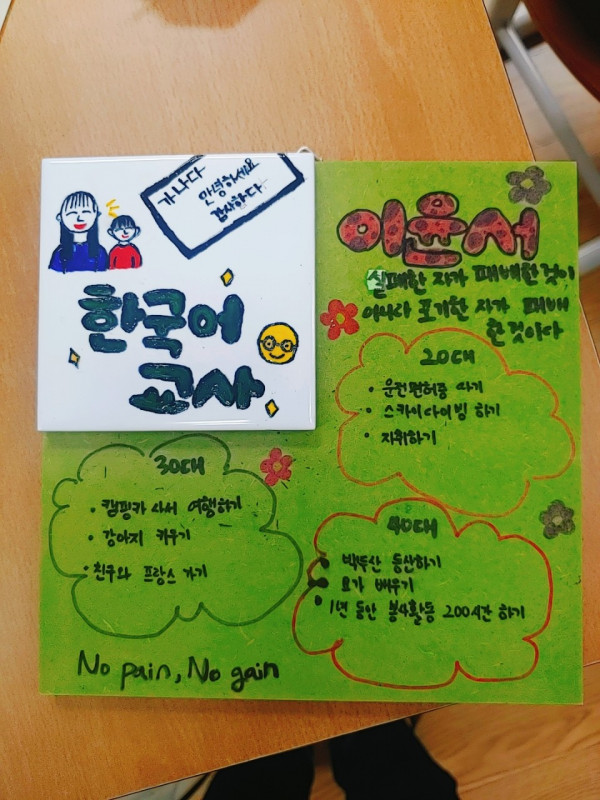 가나다
안녕하세요
감사하다
한국어
교사
이윤서
실패한 자가 패배한 것이
아니라 포기한 자가 패배
한 것이다
20대
• 운전면허증 따기
• 스카이다이빙 하기
• 자취하기
30대
• 캠핑카 사서 여행하기
• 강아지 키우기
• 친구와 프랑스 가기
40대
• 백두산 등산하기
• 요가 배우기
• 1년 동안 봉사활동 200시간 하기
No pain, No gain